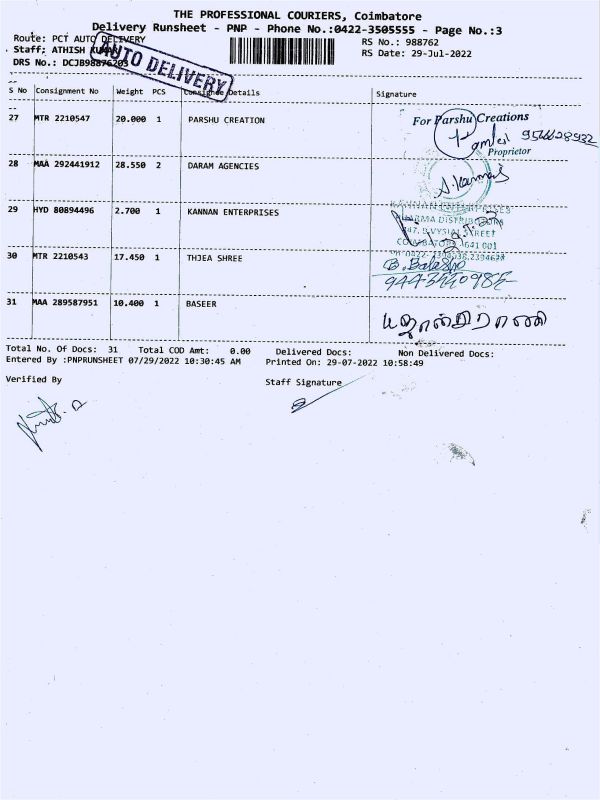 THE PROFESSIONAL COURIERS, Coimbatore
Delivery Runsheet - PNP - Phone No.:0422-3505555 - Page No.:3
Route: PCT AUTO DELIVERY
RS No.: 988762
Staff: ATHISH KUMAR
RS Date: 29-Jul-2022
DRS No.: DCJB98876203
AUTO DELIVERY
S No Consignment No Weight PCS Consignee Details Signature
27 MTR 2210547 20.000 1 PARSHU CREATION
For Parshu Creations
Proprietor
28 MAA 292441912 28.550 2 DARAM AGENCIES
29 HYD 80894496 2.700 1 KANNAN ENTERPRISES
KANNAN ENTERPRISES
PHARMA DISTRIBUTORS
STREET
COIMBATORE 641 001
30 MTR 2210543 17.450 1 THJEA SHREE
31 MAA 289587951 10.400 1 BASEER
Total No. Of Docs: 31 Total COD Amt: 0.00 Delivered Docs: Non Delivered Docs:
Entered By :PNPRUNSHEET 07/29/2022 10:30:45 AM Printed On: 29-07-2022 10:58:49
Verified By
Staff Signature